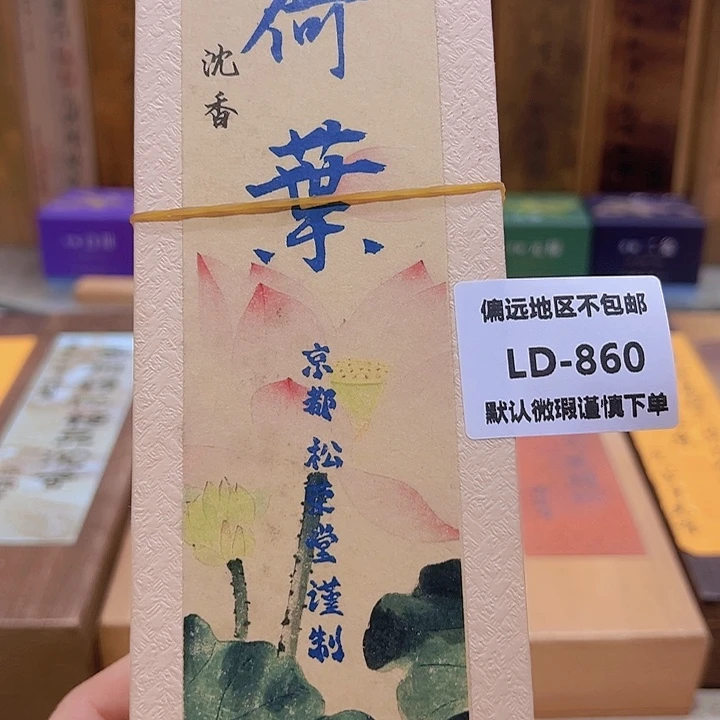 沈香
荷葉
京都 松栄堂謹制
偏远地区不包邮
LD-860
默认微瑕谨慎下单